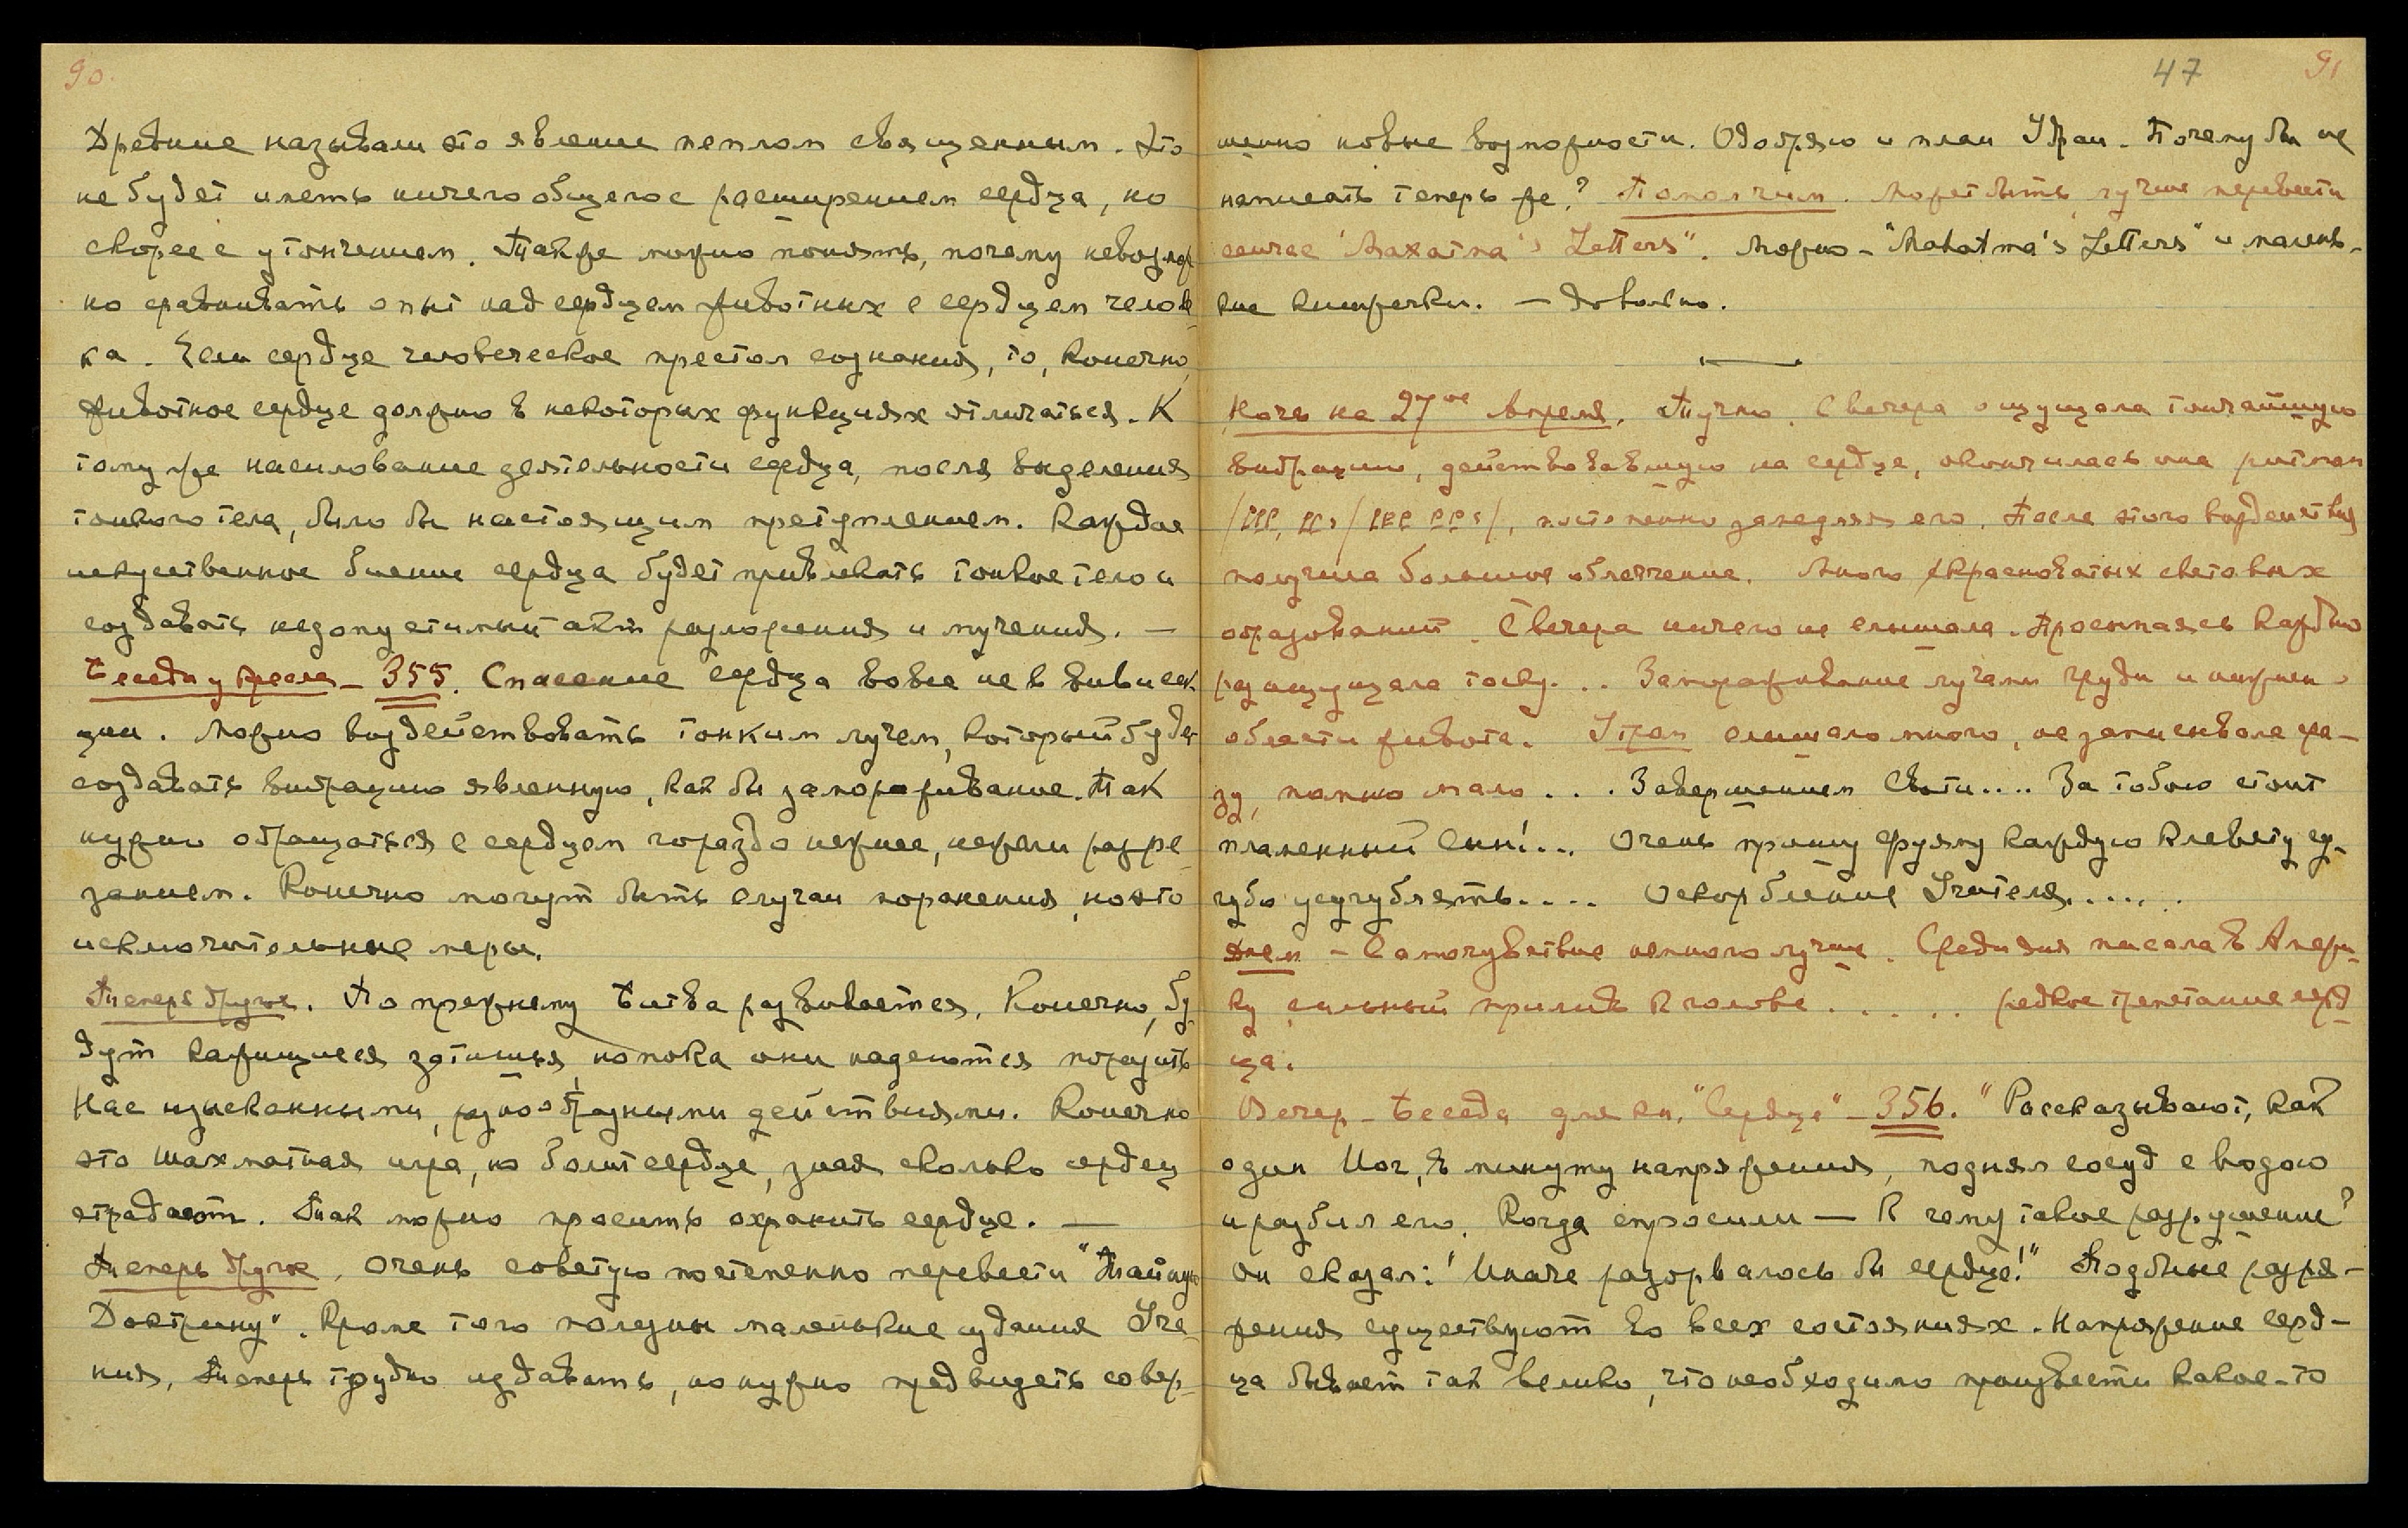 90.
Древние называли это явление пеплом священным. Это
не будет иметь ничего общего с расширением сердца, но
скорее с утончением. Также можно понять, почему невозмож
но сравнивать опыт над сердцем животных с сердцем челове-
ка. Если сердце человеческое престол сознания, то, конечно,
животное сердце должно в некоторых функциях отличаться. К
тому же насилование деятельности сердца, после выделения
тонкого тела, было бы настоящим преступлением. Каждое
искусственное биение сердца будет привлекать тонкое тело и
создавать недопустимый акт разложения и мучения. —
Беседы у Кресла — 355. Спасение сердца вовсе не в вивисек
ции. Можно воздействовать тонким лучем, который будет
создавать вибрацию явленную, как бы замораживание. Так
нужно обращаться с сердцем гораздо нежнее, нежели разре
занием. Конечно могут быть случаи поранения, но это
исключительные меры.
Теперь другое. По прежнему битва развивается. Конечно, бу
дут кажущиеся затишья, но пока они надеются поразить
Нас изысканными, разнообразными действиями. Конечно
это шахматная игра, но болит сердце, зная сколько сердец
страдает. Так можно просить охранить сердце. —
Теперь другое. Очень советую постепенно перевести "Тайную
Доктрину". Кроме того полезны маленькие издания Уче-
ния. Теперь трудно издавать, но нужно предвидеть совер-
47 91
шенно новые возможности. Одобряю и план Удраи. Почему бы не
написать теперь же? Помолчим. Может быть, лучше перевести
сейчас "Махатма's Letters". Можно — "Mahatma's Letters" и малень-
кие книжечки. — Довольно.
Ночь на 27ое Апреля. Тучно. С вечера ощущала тончайшую
вибрацию, действовавшую на сердце, окончилась она ритмом
постепенно замедляя его. После этого воздействия
получила большое облегчение. Много красноватых световых
образований. С вечера ничего не слышала. Просыпаясь каждый
раз ощущала тоску... Замораживание лучами груди и нижней
области живота. Утром слышала много, не записывала сра-
зу, помню мало... Завершением Свати.... За тобою стоит
пламенный Сын!... Очень прошу Фуяму каждую клевету су-
губо усугублять.... Оскорбление Учителя......
Днем — Самочувствие немного лучше. Среди дня писала в Амери-
ку, сильный прилив к голове..... редкое трепетание серд-
ца.
Вечер — Беседа для кн. "Сердце" — 356. "Рассказывают, как
один Йог, в минуту напряжения, поднял сосуд с водою
и разбил его. Когда спросили — К чему такое разрушение?
Он сказал: "Иначе разорвалось бы сердце!" Подобные разря-
жения существуют во всех состояниях. Напряжение серд-
ца бывает так велико, что необходимо произвести какое-то